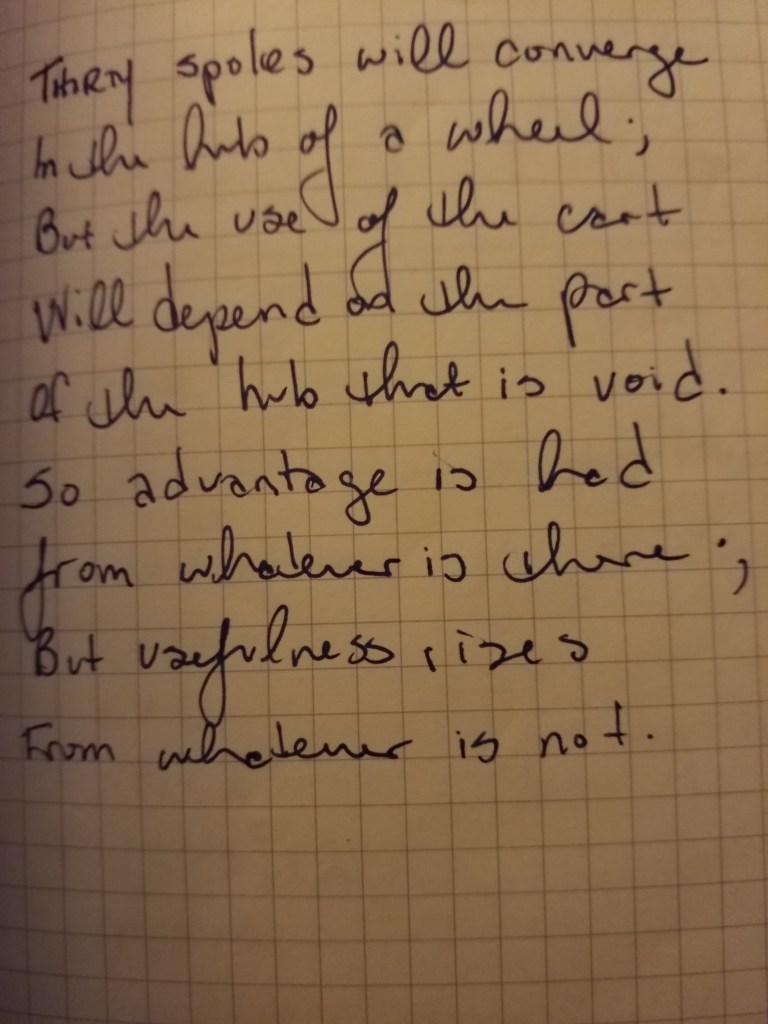 THIRTY spokes will converge
In the hub of a wheel;
But the use of the cart
Will depend on the part
Of the hub that is void.
So advantage is had
from whatever is there;
But usefulness rises
From whatever is not.